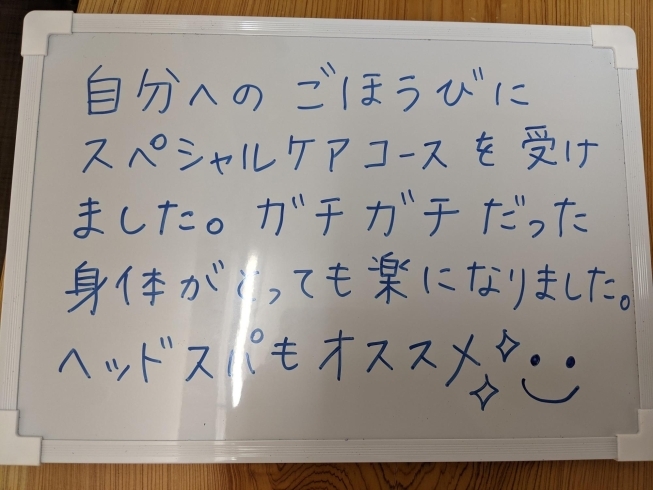 自分へのごほうびに
スペシャルケアコースを受け
ました。ガチガチだった
身体がとっても楽になりました。
ヘッドスパもオススメ